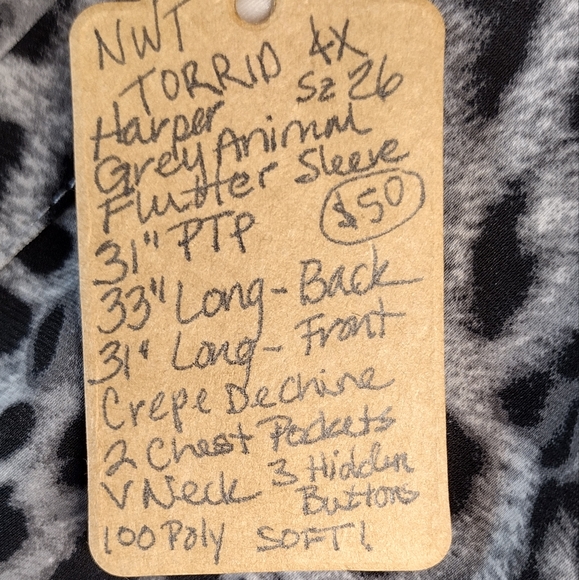 NWT
TORRID 4X
Harper Sz 26
Grey Animal
Flutter Sleeve
31" PTP $50
33" Long - Back
31" Long - Front
Crepe Dechine
2 Chest Pockets
V Neck 3 Hidden
Buttons
100 Poly SOFT!